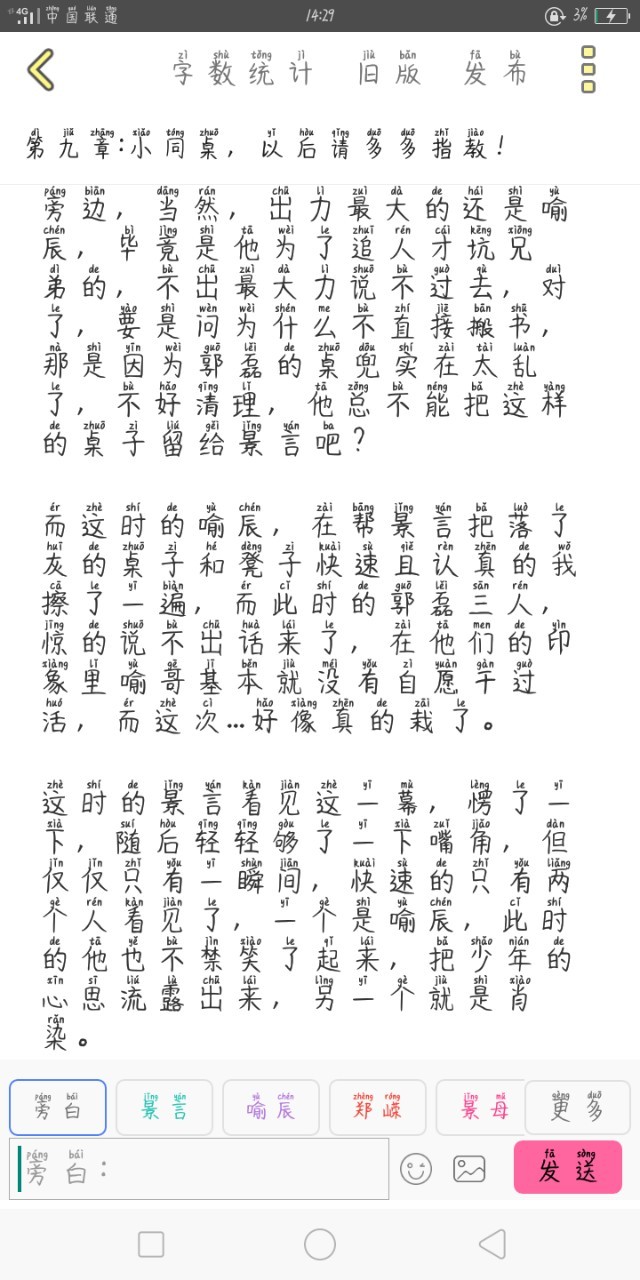 4G 中国联通 14:29 3%
字数统计 旧版 发布
第九章:小同桌,以后请多多指教!
旁边,当然,出力最大的还是喻
辰,毕竟是他为了追人才坑兄
弟的,不出最大力说不过去,对
了,要是问为什么不直接搬书,
那是因为郭磊的桌兜实在太乱
了,不好清理,他总不能把这样
的桌子留给景言吧?
而这时的喻辰,在帮景言把落了
灰的桌子和凳子快速且认真的我
擦了一遍,而此时的郭磊三人,
惊的说不出话来了,在他们的印
象里喻哥基本就没有自愿干过
活,而这次...好像真的栽了。
这时的景言看见这一幕,愣了一
下,随后轻轻够了一下嘴角,但
仅仅只有一瞬间,快速的只有两
个人看见了,一个是喻辰,此时
的他也不禁笑了起来,把少年的
心思流露出来,另一个就是肖
染。
旁白 景言 喻辰 郑嵘 景母 更多
旁白: 发送